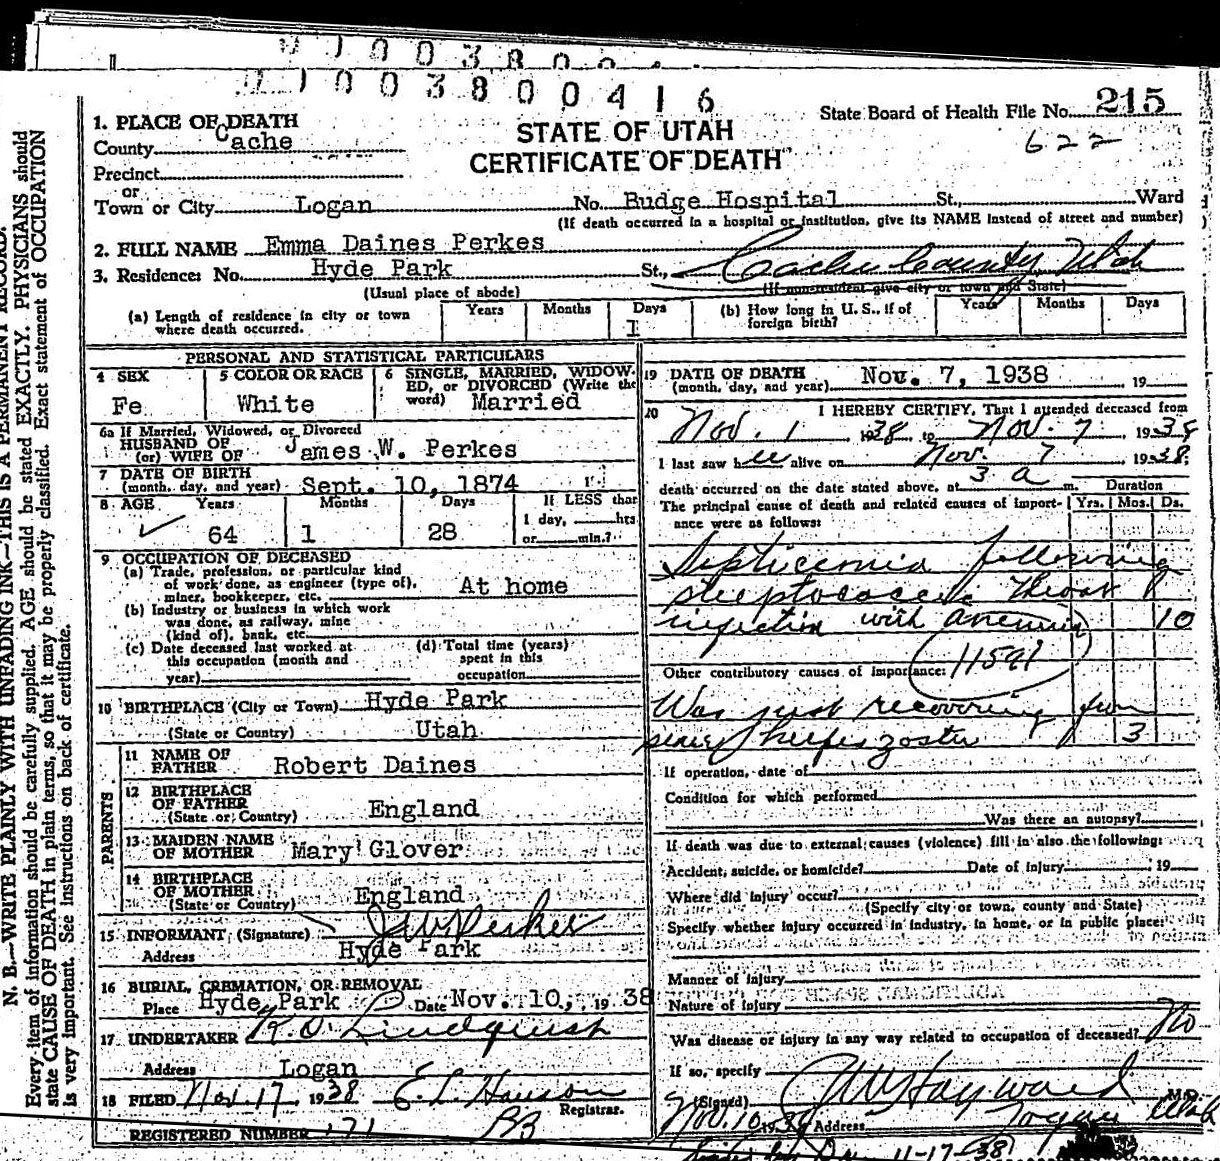 1003800
1003800416
State Board of Health File No. 215
622
STATE OF UTAH
CERTIFICATE OF DEATH
1. PLACE OF DEATH
County Cache
Precinct
or
Town or City Logan No. Budge Hospital St., Ward
(If death occurred in a hospital or institution, give its NAME instead of street and number)
2. FULL NAME Emma Daines Perkes
3. Residence: No. Hyde Park St., Cache County Utah
(Usual place of abode) (If non-resident give city or town and State)
(a) Length of residence in city or town where death occurred. Years Months Days 1 (b) How long in U. S., if of foreign birth? Years Months Days
PERSONAL AND STATISTICAL PARTICULARS
4 SEX Fe
5 COLOR OR RACE White
6 SINGLE, MARRIED, WIDOWED, or DIVORCED (Write the word) Married
6a If Married, Widowed, or Divorced
HUSBAND OF
(or) WIFE OF James W. Perkes
7 DATE OF BIRTH
(month, day, and year) Sept. 10, 1874
8 AGE Years 64 Months 1 Days 28 If LESS than 1 day, hrs. or min.?
9 OCCUPATION OF DECEASED
(a) Trade, profession, or particular kind
of work done, as engineer (type of),
miner, bookkeeper, etc. At home
(b) Industry or business in which work
was done, as railway, mine
(kind of), bank, etc.
(c) Date deceased last worked at
this occupation (month and
year)
(d) Total time (years)
spent in this
occupation
10 BIRTHPLACE (City or Town) Hyde Park
(State or Country) Utah
PARENTS
11 NAME OF
FATHER Robert Daines
12 BIRTHPLACE
OF FATHER
(State or Country) England
13 MAIDEN NAME
OF MOTHER Mary Glover
14 BIRTHPLACE
OF MOTHER
(State or Country) England
15 INFORMANT (Signature) J W Perkes
Address Hyde Park
16 BURIAL, CREMATION, OR REMOVAL
Place Hyde Park Date Nov. 10, 19 38
17 UNDERTAKER R. O. Lindquist
Address Logan
18 FILED Nov. 17, 1938 E. L. Hanson
Registrar.
REGISTERED NUMBER 171
19 DATE OF DEATH
(month, day, and year) Nov. 7, 1938 19
20 I HEREBY CERTIFY, That I attended deceased from
Nov. 1 1938, to Nov. 7 1938
I last saw her alive on Nov. 7 1938.
death occurred on the date stated above, at 3 a m. Duration
The principal cause of death and related causes of importance were as follows: Yrs. Mos. Ds.
Septicemia following
streptococcic throat
infection with anemia 10
Other contributory causes of importance:
Was just recovering from
herpes zoster 3
If operation, date of
Condition for which performed
Was there an autopsy?
If death was due to external causes (violence) fill in also the following:
Accident, suicide, or homicide? Date of injury 19
Where did injury occur?
(Specify city or town, county and State)
Specify whether injury occurred in industry, in home, or in public place:
Manner of injury
Nature of injury
Was disease or injury in any way related to occupation of deceased? No
If so, specify
(Signed) J W Hayward M.D.
Nov. 10 1938 Address Logan Utah
11-17-38
N. B.—WRITE PLAINLY WITH UNFADING INK—THIS IS A PERMANENT RECORD.
Every item of information should be carefully supplied. AGE should be stated EXACTLY. PHYSICIANS should
state CAUSE OF DEATH in plain terms, so that it may be properly classified. Exact statement of OCCUPATION
is very important. See instructions on back of certificate.